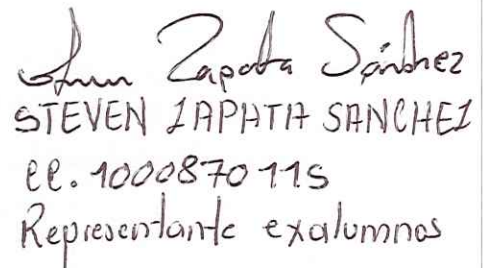 Steven Zapata Sánchez
STEVEN ZAPATA SANCHEZ
cc. 1000870115
Representante exalumnos